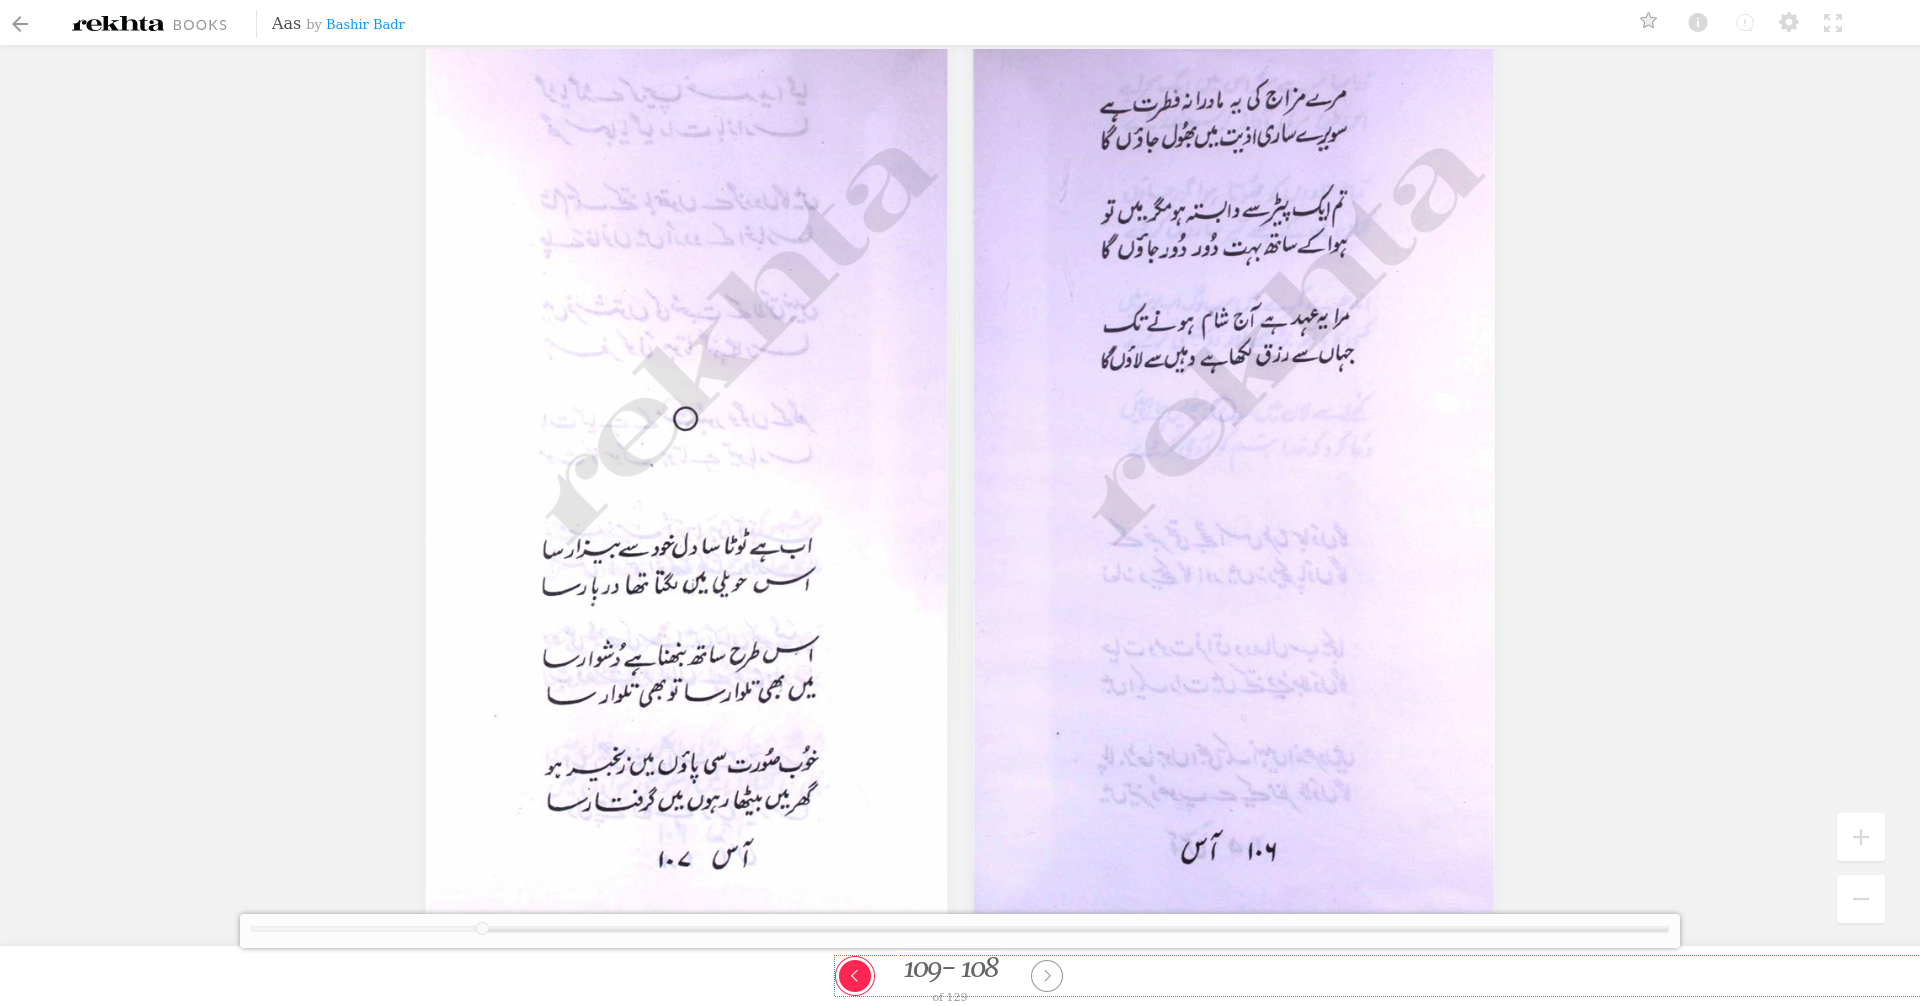 rekhta BOOKS Aas by Bashir Badr
مرے مزاج کی یہ مادرانہ فطرت ہے
سویرے ساری اذیت میں بھُول جاؤں گا
تم ایک پیڑ سے وابستہ ہو مگر میں تو
ہوا کے ساتھ بہت دُور دُور جاؤں گا
مرا یہ عہد ہے آج شام ہونے تک
جہاں سے رزق لکھا ہے وہیں سے لاؤں گا
۱۰۶ آس
rekhta
اب ہے ٹوٹا سا دل خود سے بیزار سا
اس حویلی میں لگتا تھا دربار سا
اس طرح ساتھ نبھنا ہے دُشوار سا
میں بھی تلوار سا تو بھی تلوار سا
خوُب صوُرت سی پاؤں میں زنجیر ہو
گھر میں بیٹھا رہوں میں گرفتار سا
آس ۱۰۷
rekhta
109- 108
of 129